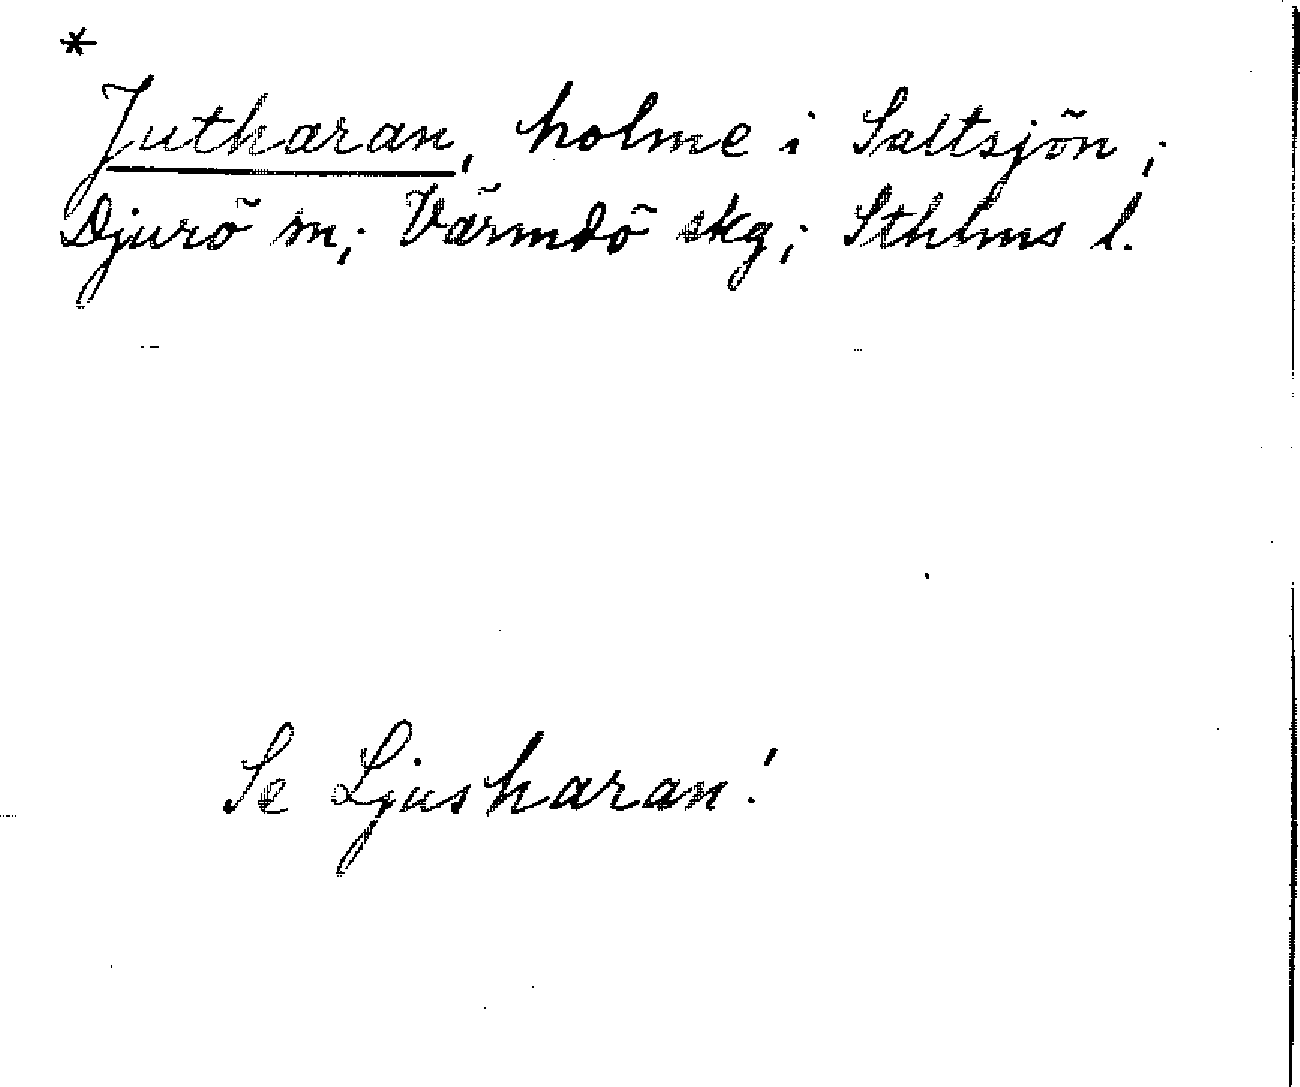 *
Jutharan, holme i Saltsjön;
Djurö m; Värmdö skg; Sthlms l.
Se Ljusharan!